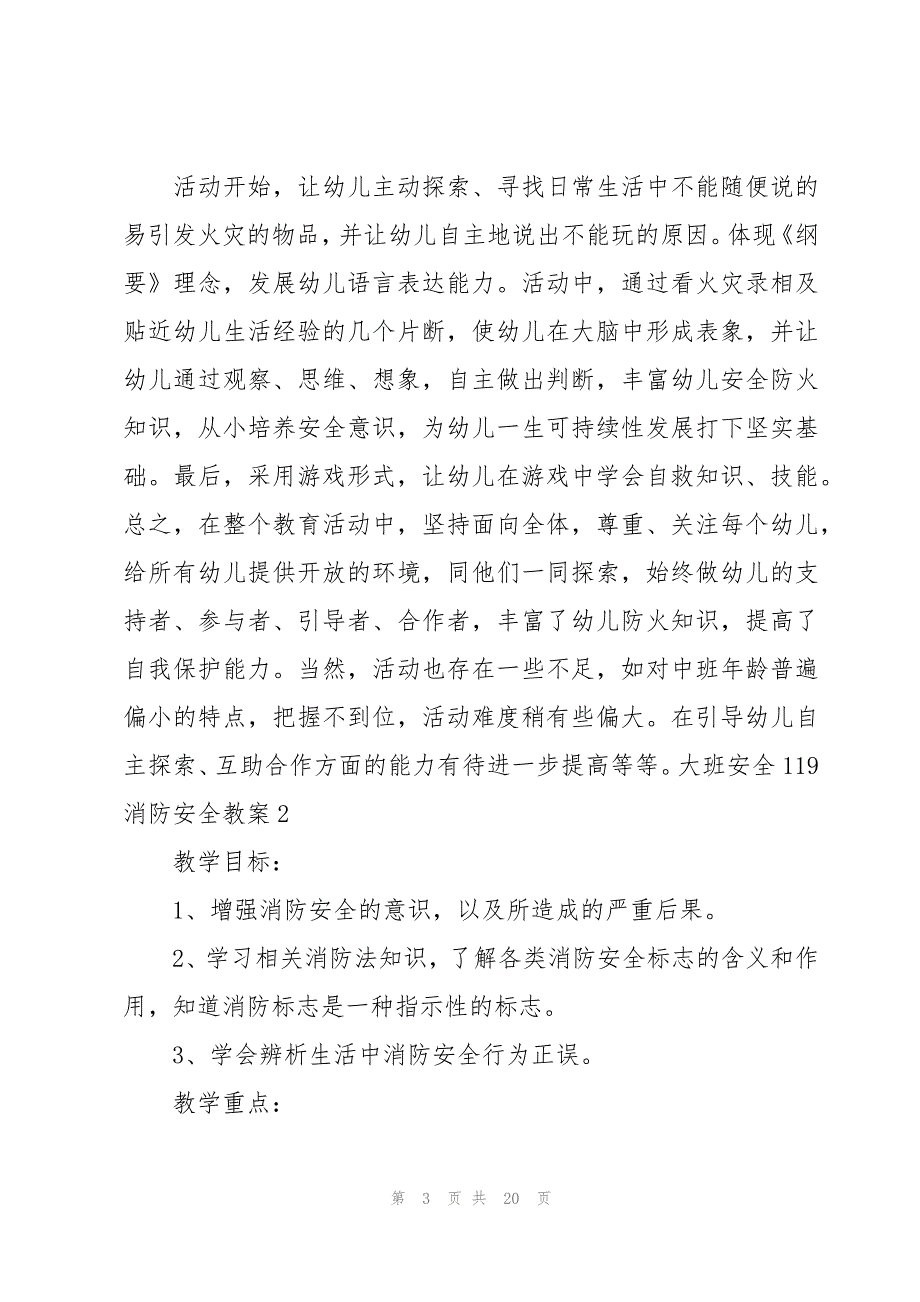 活动开始，让幼儿主动探索、寻找日常生活中不能随便说的
易引发火灾的物品，并让幼儿自主地说出不能玩的原因。体现《纲
要》理念，发展幼儿语言表达能力。活动中，通过看火灾录相及
贴近幼儿生活经验的几个片断，使幼儿在大脑中形成表象，并让
幼儿通过观察、思维、想象，自主做出判断，丰富幼儿安全防火
知识，从小培养安全意识，为幼儿一生可持续性发展打下坚实基
础。最后，采用游戏形式，让幼儿在游戏中学会自救知识、技能。
总之，在整个教育活动中，坚持面向全体，尊重、关注每个幼儿，
给所有幼儿提供开放的环境，同他们一同探索，始终做幼儿的支
持者、参与者、引导者、合作者，丰富了幼儿防火知识，提高了
自我保护能力。当然，活动也存在一些不足，如对中班年龄普遍
偏小的特点，把握不到位，活动难度稍有些偏大。在引导幼儿自
主探索、互助合作方面的能力有待进一步提高等等。大班安全119
消防安全教案2
教学目标：
1、增强消防安全的意识，以及所造成的严重后果。
2、学习相关消防法知识，了解各类消防安全标志的含义和作
用，知道消防标志是一种指示性的标志。
3、学会辨析生活中消防安全行为正误。
教学重点：
第 3 页 共 20 页